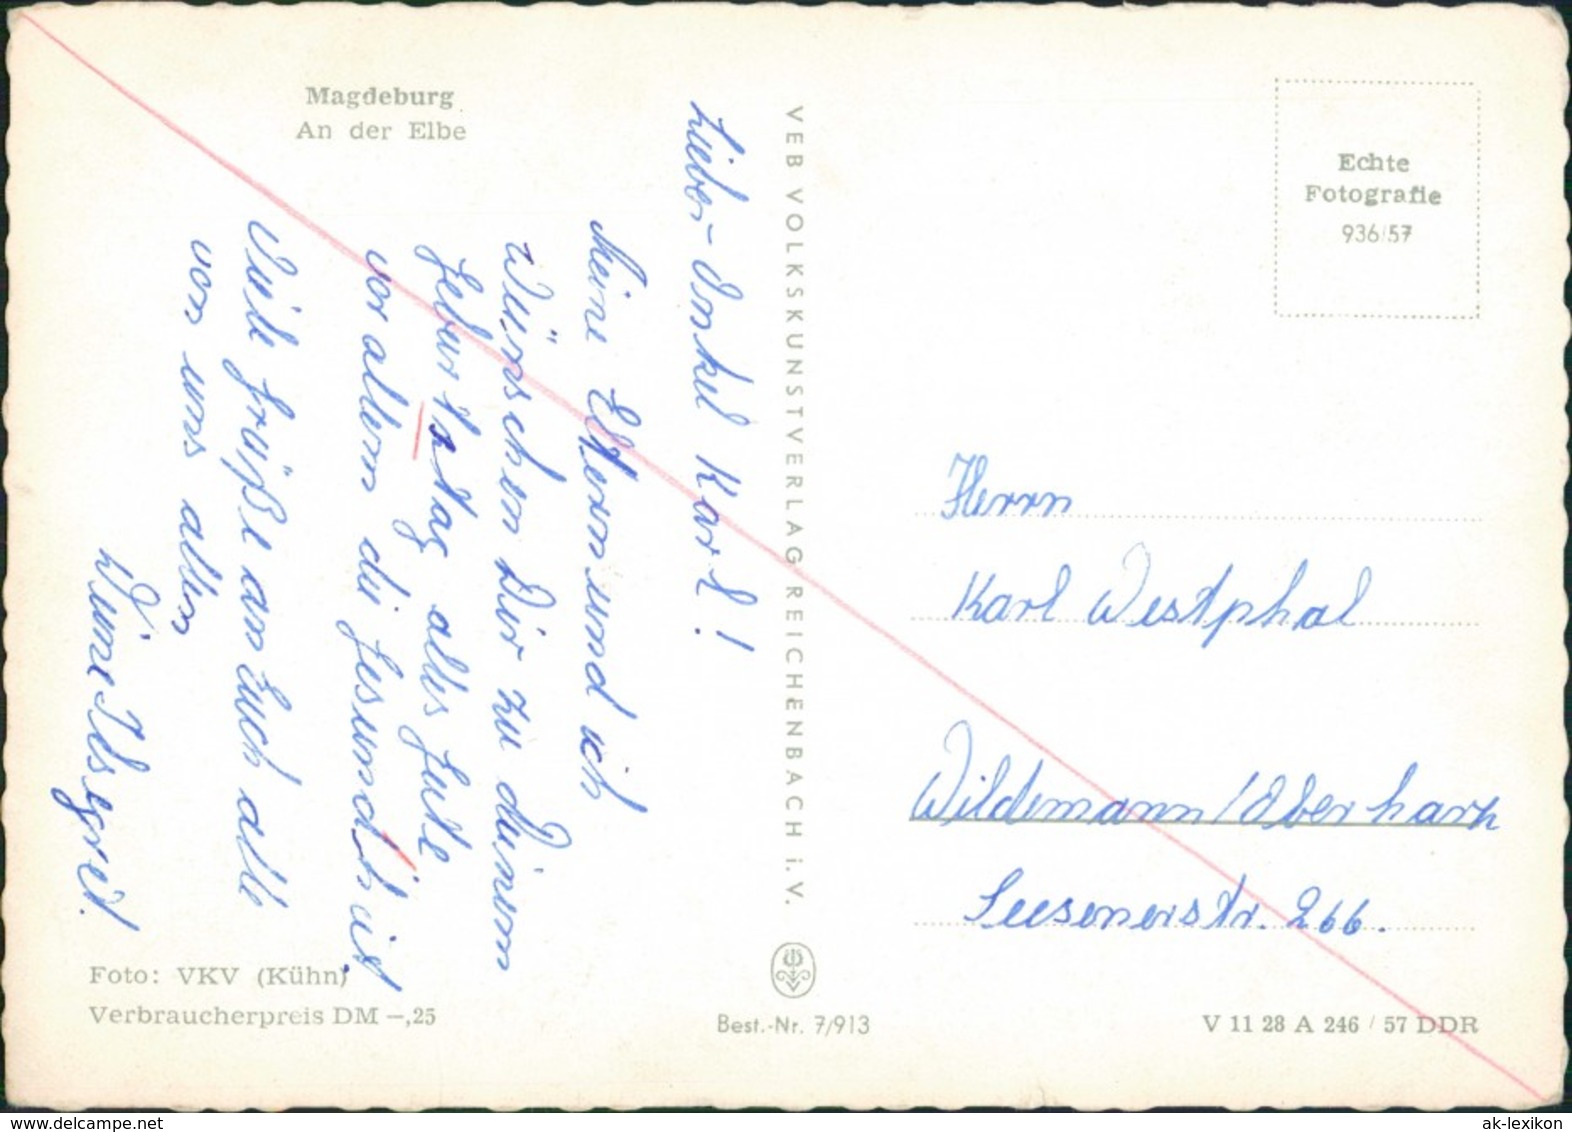 Magdeburg
An der Elbe
Lieber Onkel Karl!
Meine Eltern und ich
Wünschen Dir zu deinem
Geburtstag alles Gute
vor allem die Gesundheit
Viele Grüße an Euch alle
von uns allen
Deine Ilsegret.
Foto: VKV (Kühn)
Verbraucherpreis DM –,25
VEB VOLKSKUNSTVERLAG REICHENBACH i. V.
Best.-Nr. 7/913
Echte
Fotografie
936/57
Herrn
Karl Westphal
Wildemann/Oberharz
Seesenerstr. 266.
V 11 28 A 246 / 57 DDR
ak-ansichtskarten.de
ak-lexikon